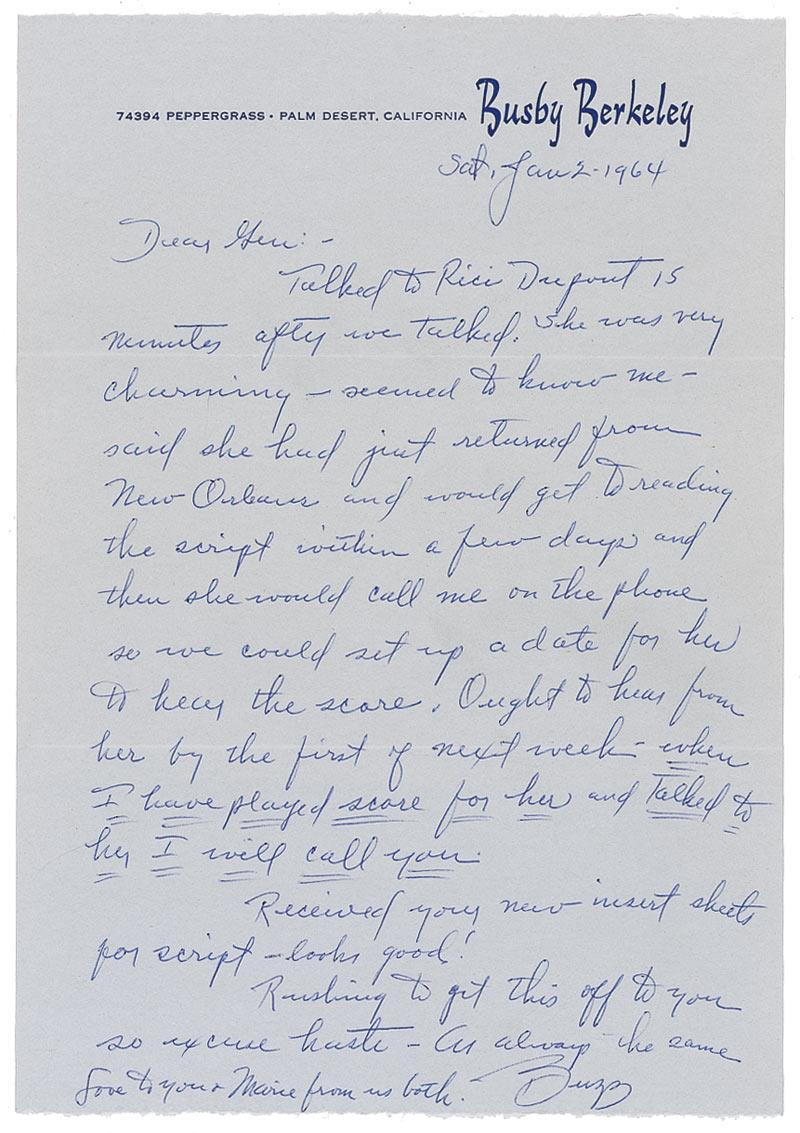 74394 PEPPERGRASS • PALM DESERT, CALIFORNIA Busby Berkeley
Sat, Jan 2-1964
Dear Gen:-
Talked to Rici Dupont 15
minutes after we talked. She was very
charming - seemed to know me -
said she had just returned from
New Orleans and would get to reading
the script within a few days and
then she would call me on the phone
so we could set up a date for her
to hear the score. Ought to hear from
her by the first of next week - when
I have played score for her and talked to
her I will call you.
Received your new insert sheets
for script - looks good!
Rushing to get this off to you
so excuse haste - As always the same
Love to you & Marie from us both. Buzz